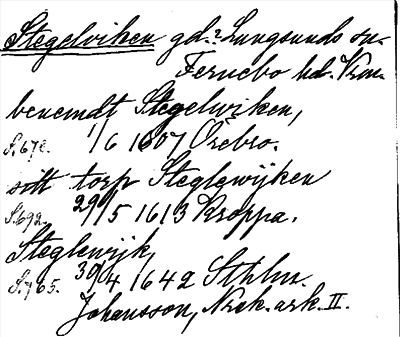 Stegelviken gd.? Lungsunds sn.
Fernebo hd. Vrml.
benemdt Stegelwiken,
S. 678. 1/6 1607 Örebro.
sitt torp Steglewijken
S. 692. 29/5 1613 Kroppa.
Steglewijk,
S. 765. 30/4 1642 Sthlm.
Johansson, Norek. ark. II.